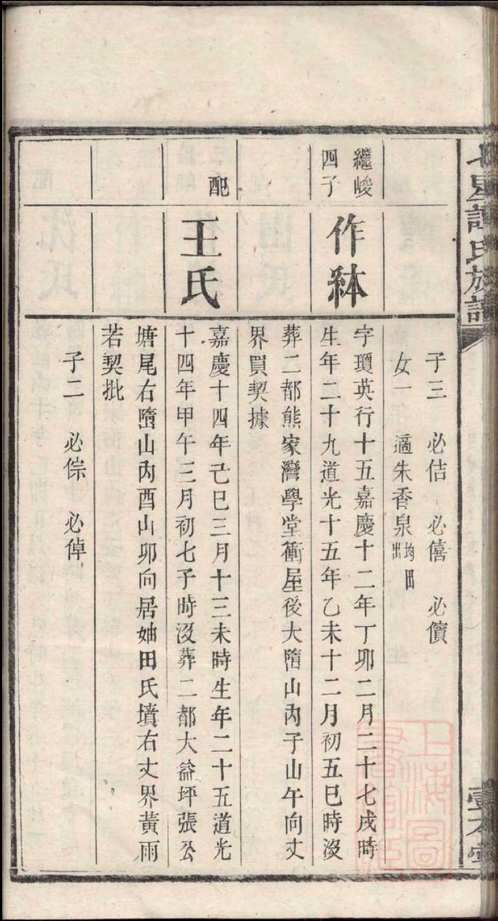 子三　必佶　必僖　必儥
女一　適朱香泉均田出
繼峻四子
作鉢
字瓊英行十五嘉慶十二年丁卯二月二十七戌時
生年二十九道光十五年乙未十二月初五巳時沒
葬二都熊家灣學堂衝屋後大隋山內子山午向丈
界買契據
配
王氏
嘉慶十四年己巳三月十三未時生年二十五道光
十四年甲午三月初七子時沒葬二都大益坪張公
塘尾右隋山內酉山卯向居妯田氏墳右丈界黃雨
若契批
子二　必倧　必倬
星譚氏族譜
壹本堂
上海圖書館藏